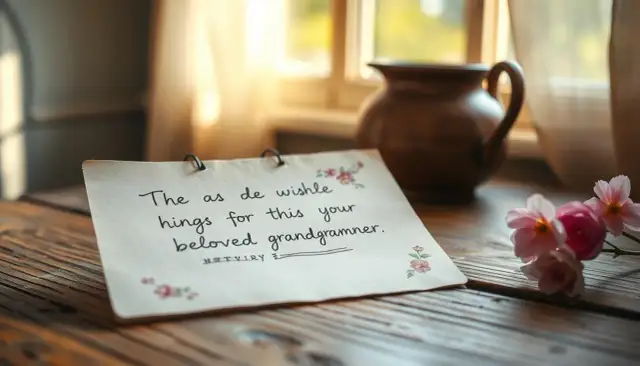 The as de wishle
hings for this your
beloved grandgramner.